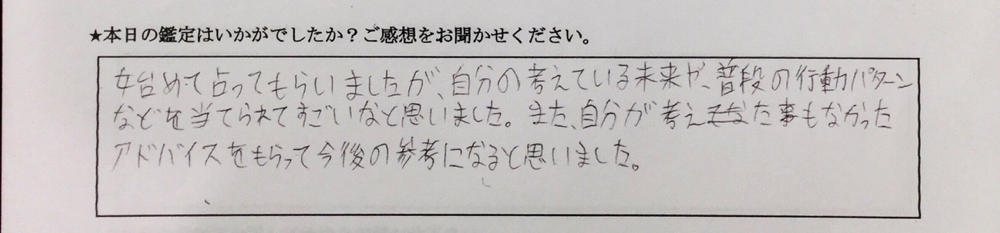 ★本日の鑑定はいかがでしたか？ご感想をお聞かせください。
始めて占ってもらいましたが、自分の考えている未来や、普段の行動パターン
などを当てられてすごいなと思いました。また、自分が考えもなた事もなかった
アドバイスをもらって今後の参考になると思いました。